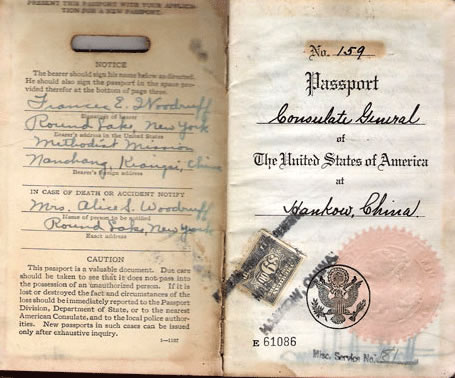 PRESENT THIS PASSPORT WITH YOUR APPLICA-
TION FOR A NEW PASSPORT.
NOTICE
The bearer should sign his name below as directed.
He should also sign the passport in the space pro-
vided therefor at the bottom of page three.
Frances E. Woodruff
Signature of bearer
Round Lake, New York
Bearer's address in the United States
Methodist Mission
Nanchang, Kiangsi, China
Bearer's foreign address
IN CASE OF DEATH OR ACCIDENT NOTIFY
Mrs. Alice S. Woodruff
Name of person to be notified
Round Lake, New York
Exact address
CAUTION
This passport is a valuable document. Due care
should be taken to see that it does not pass into
the possession of an unauthorized person. If it is
lost or destroyed the fact and circumstances of the
loss should be immediately reported to the Passport
Division, Department of State, or to the nearest
American Consulate, and to the local police author-
ities. New passports in such cases can be issued
only after exhaustive inquiry.
No. 159
Passport
Consulate General
of
The United States of America
at
Hankow, China
HANKOW, CHINA
E 61086
Misc. Service No. 81